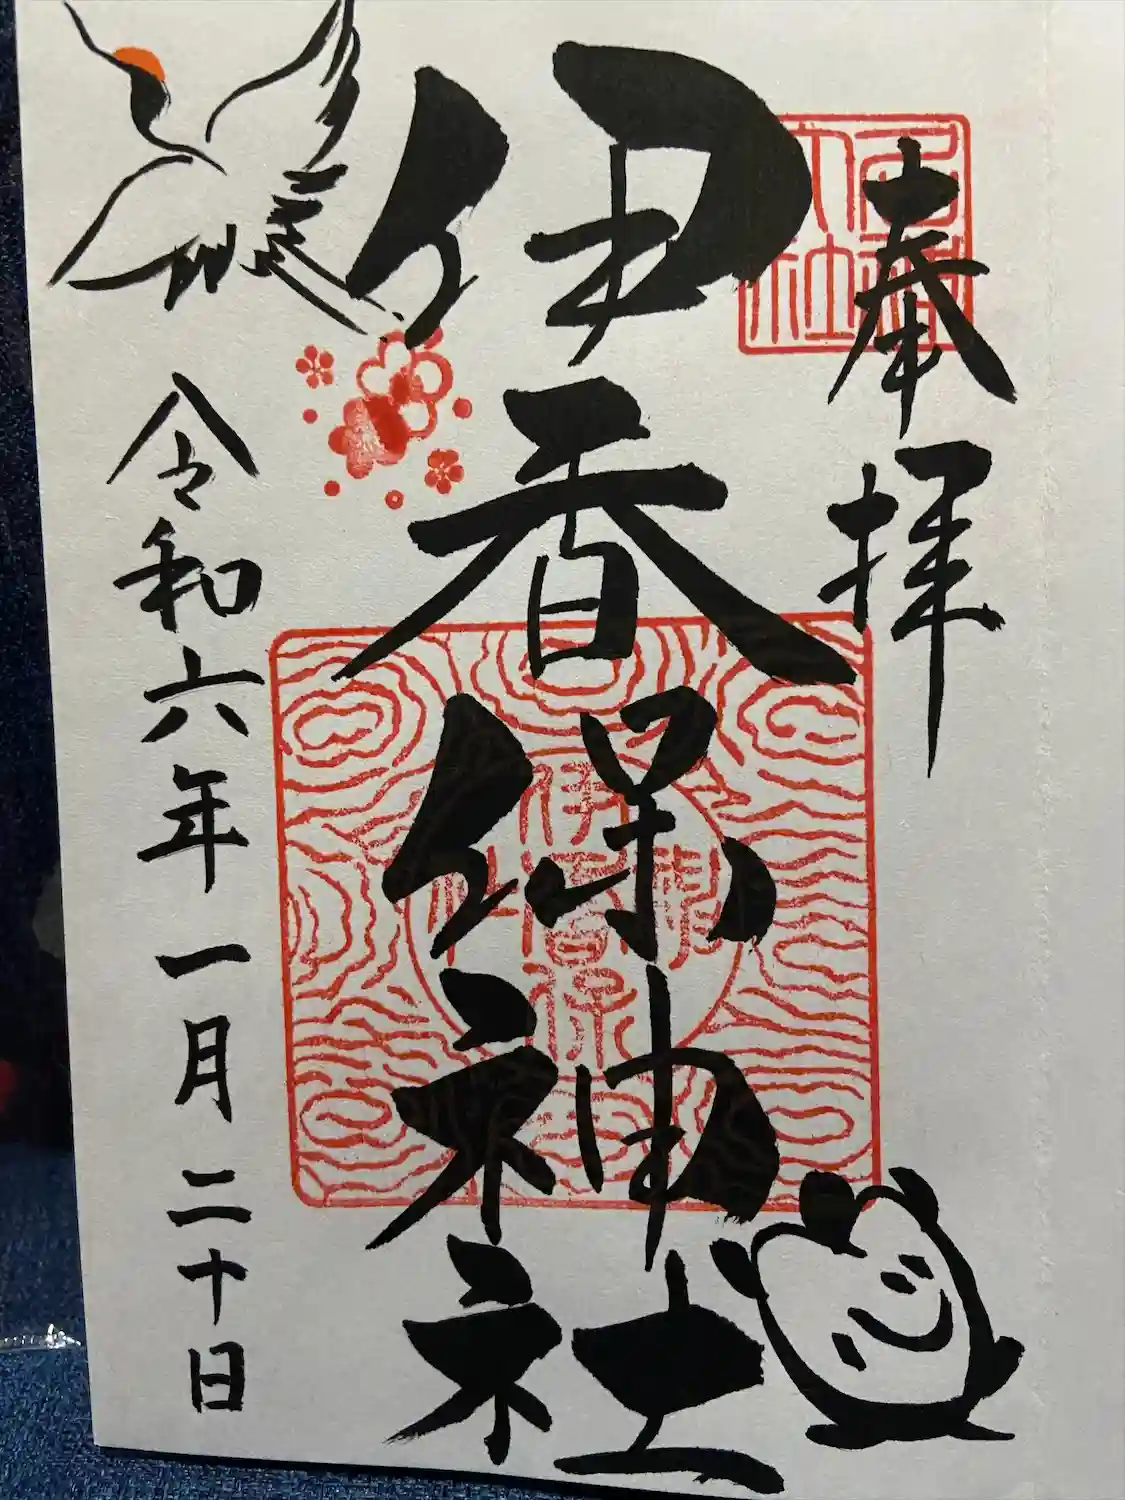 奉拝
伊香保神社
令和六年一月二十日
伊香保